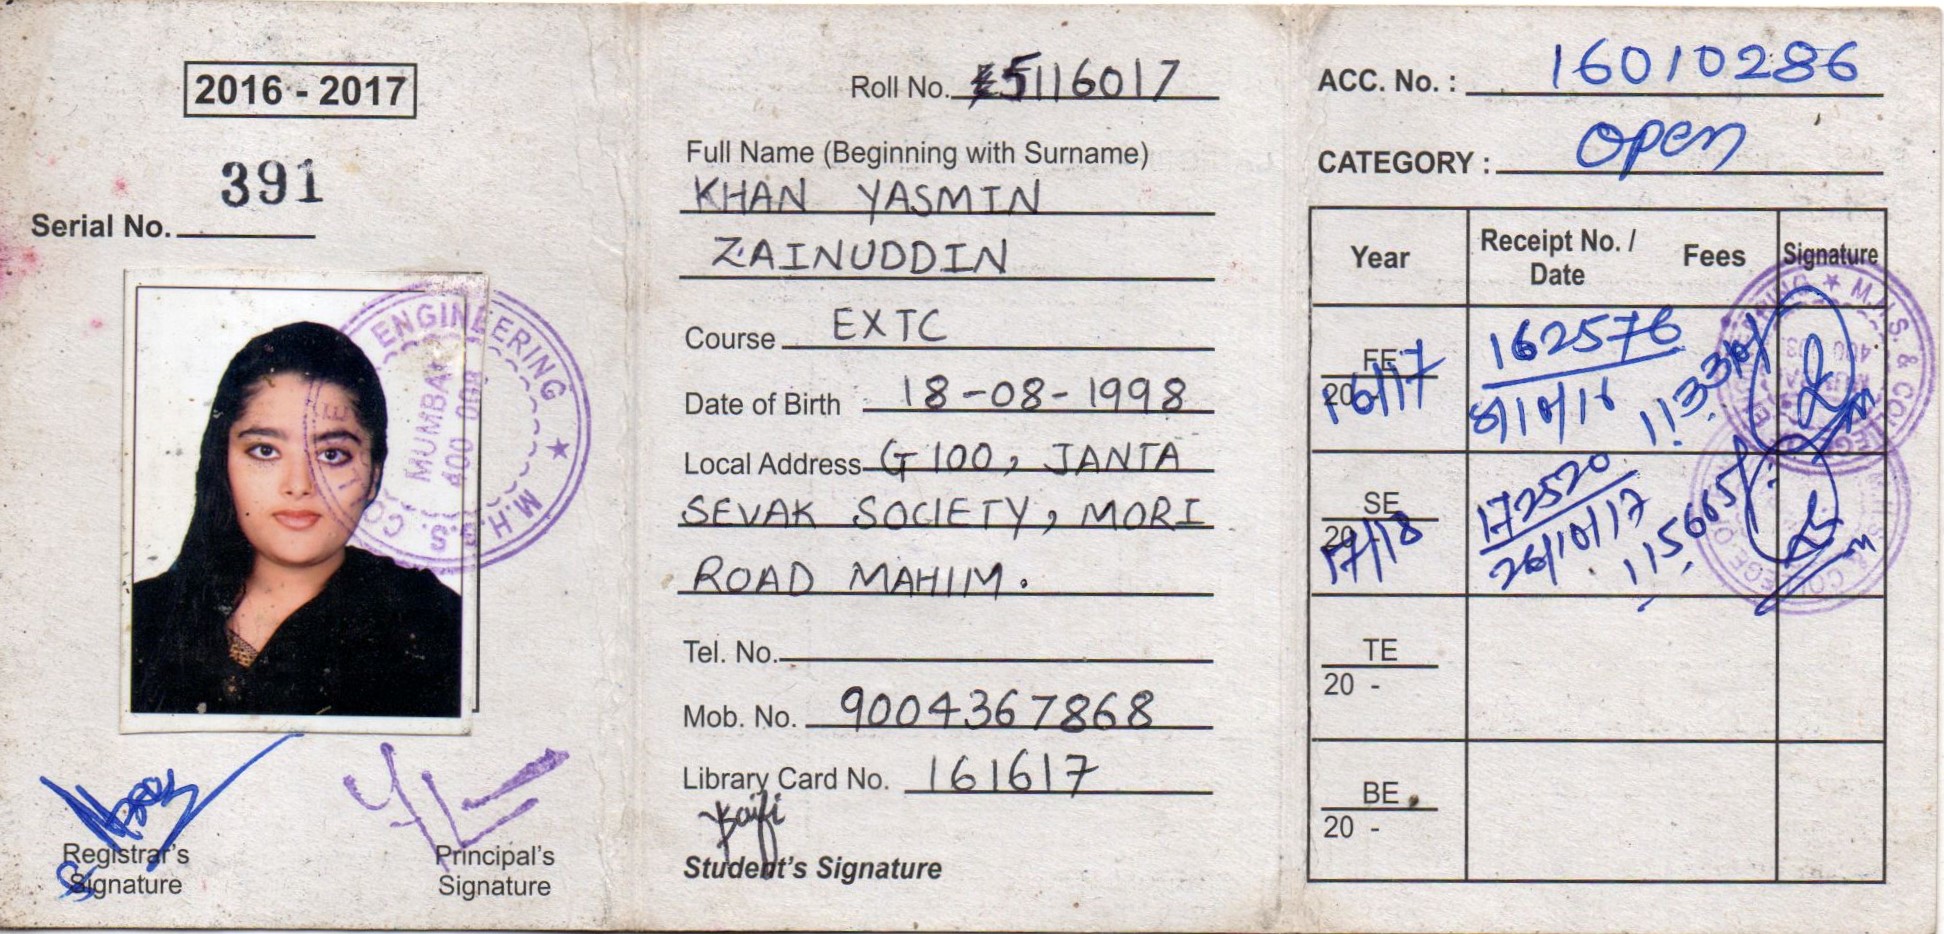 2016 - 2017
391
Serial No.
ENGINEERING ★ M.H.S.S. CO
MUMBAI
400 008
Registrar's
Signature
Principal's
Signature
Roll No. 5116017
Full Name (Beginning with Surname)
KHAN YASMIN
ZAINUDDIN
Course EXTC
Date of Birth 18-08-1998
Local Address G 100, JANTA
SEVAK SOCIETY, MORI
ROAD MAHIM.
Tel. No.
Mob. No. 9004367868
Library Card No. 161617
Student's Signature
ACC. No. : 16010286
CATEGORY : open
Year Receipt No. / Date Fees Signature
FE 162576
20 16/17 8/10/16
SE 172520
20 17/18 26/10/17 115665/-
TE
20 -
BE
20 -